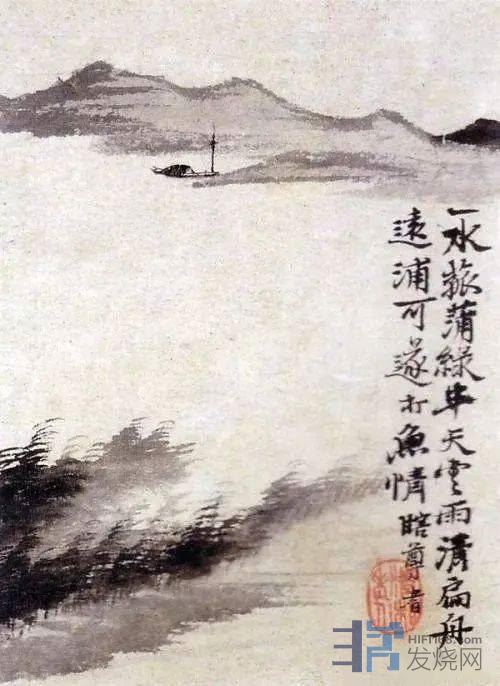 一水菰蒲綠半天雲雨清扁舟
遠浦可遂打魚情瞎尊者
HIFI168.com
发烧网